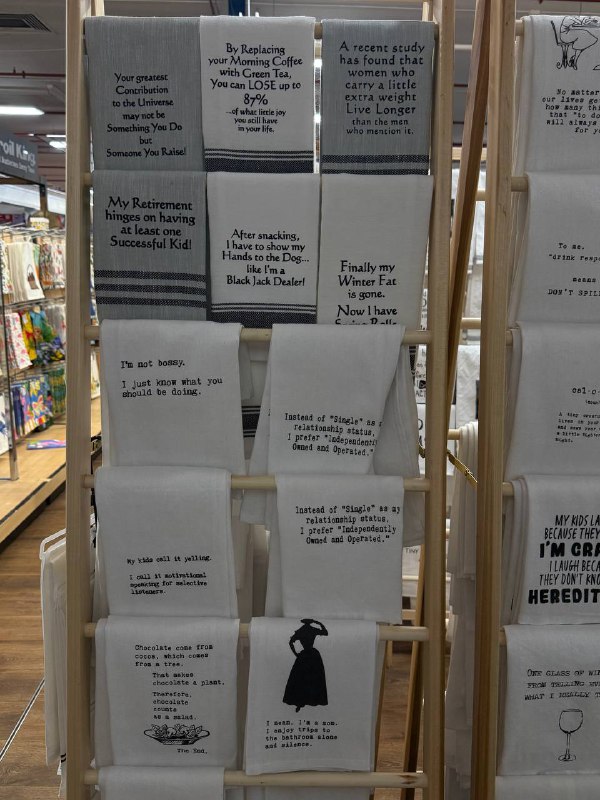 Your greatest
Contribution
to the Universe
may not be
Something You Do
but
Someone You Raise!
By Replacing
your Morning Coffee
with Green Tea,
You can LOSE up to
87%
...of what little joy
you still have
in your life.
A recent study
has found that
women who
carry a little
extra weight
Live Longer
than the men
who mention it.
My Retirement
hinges on having
at least one
Successful Kid!
After snacking,
I have to show my
Hands to the Dog...
like I'm a
Black Jack Dealer!
Finally my
Winter Fat
is gone.
Now I have
I'm not bossy.
I just know what you
should be doing.
Instead of "Single" as
relationship status,
I prefer "Independently
Owned and Operated."
My kids call it yelling.
I call it motivational
speaking for selective
listeners.
Instead of "Single" as my
relationship status,
I prefer "Independently
Owned and Operated."
Chocolate come from
cocoa, which comes
from a tree.
That makes
chocolate a plant.
Therefore,
chocolate
counts
as a salad.
The End.
I mean, I'm a mom.
I enjoy trips to
the bathroom alone
and silence.
No matter
our lives ge
how many thi
that "to do
will always
for yo
To me,
"drink resp
means
DON'T SPILL
MY KIDS LA
BECAUSE THEY
I'M CRA
I LAUGH BECA
THEY DON'T KNO
HEREDIT
ONE GLASS OF WI
FROM TELLING
WHAT I REALLY T